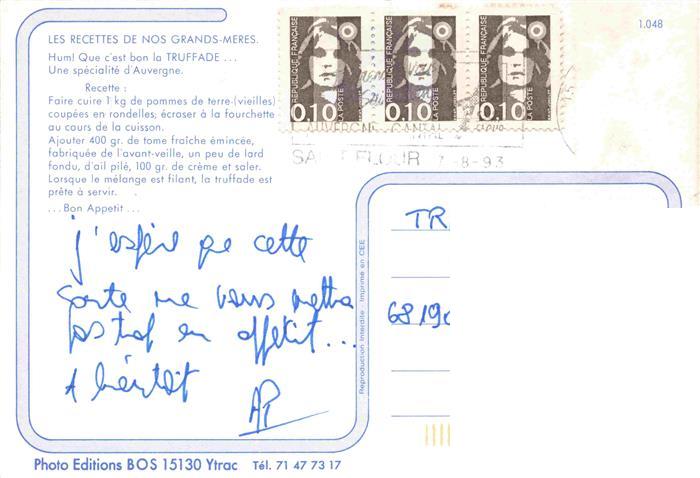 LES RECETTES DE NOS GRANDS-MERES.
Hum! Que c'est bon la TRUFFADE ...
Une spécialité d'Auvergne.
Recette :
Faire cuire 1 kg de pommes de terre (vieilles)
coupées en rondelles; écraser à la fourchette
au cours de la cuisson.
Ajouter 400 gr. de tome fraîche émincée,
fabriquée de l'avant-veille, un peu de lard
fondu, d'ail pilé, 100 gr. de crème et saler.
Lorsque le mélange est filant, la truffade est
prête à servir.
...Bon Appetit...
REPUBLIQUE FRANÇAISE
0,10
LA POSTE
REPUBLIQUE FRANÇAISE
0,10
LA POSTE
REPUBLIQUE FRANÇAISE
0,10
LA POSTE
1.048
AUVERGNE CANTAL
FLOUR 7-8-93
j'espère que cette
carte ne vous mettra
pas trop en appétit...
A bientôt
TR
6819
Reproduction Interdite - Imprimé en CEE
Photo Editions BOS 15130 Ytrac Tél. 71 47 73 17